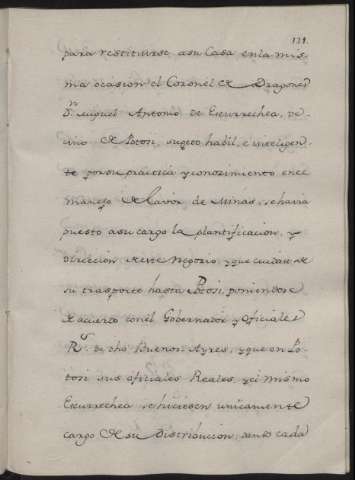 121.
para restituirse a su Casa en la mis-
ma ocasion el Coronel de Dragones
Dn. Miguel Antonio de Escurrechea, ve-
cino de Potosi, sugeto habil, e inteligen-
te por su practica y conozimiento en el
manejo de lavor de Minas, se havia
puesto a su cargo la plantificacion, y
direccion de este Negozio, y que cuidase de
su trasporte hasta Potosi, poniendose
de acuerdo con el Governador y Oficiales
Rs. de dho Buenos-Ayres, y que en Po-
tosi sus oficiales Reales, y el mismo
Escurrechea se hiciesen unicamente
cargo de su Distribucion, dando cada